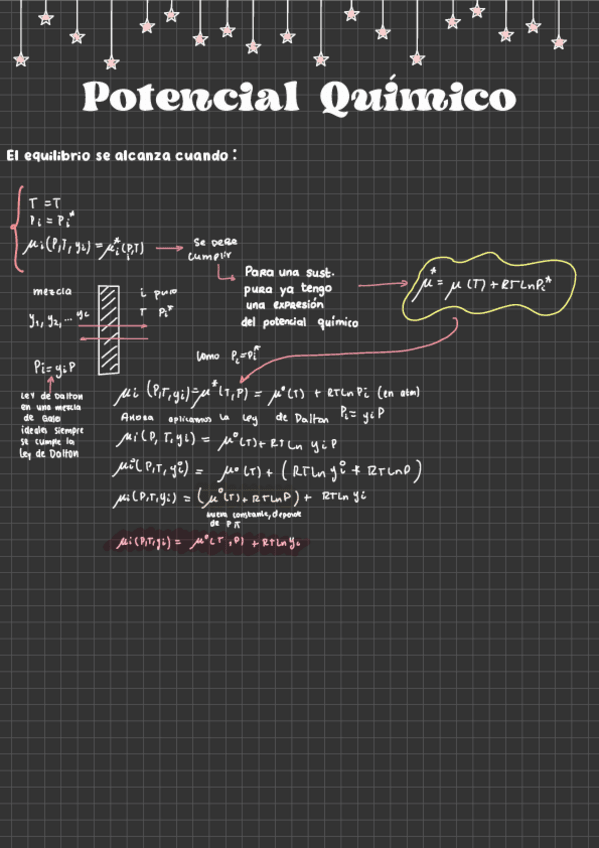 Potencial Químico
El equilibrio se alcanza cuando :
T = T
Pi = Pi*
μi(P,T, yi) = μi*(Pi,T)
Se debe
cumplir
Para una sust.
pura ya tengo
una expresión
del potencial químico
μ* = μ (T) + RT Ln Pi*
mezcla
i puro
y1, y2, ... yi
T Pi*
Pi = yi P
Como Pi = Pi*
Ley de Dalton
en una mezcla
de Gases
ideales siempre
se cumple la
ley de Dalton
μi (P,T, yi) = μ*(T, P) = μ°(T) + RT Ln Pi (en atm)
Ahora aplicamos la ley de Dalton Pi = yi P
μi (P, T, yi) = μ°(T) + RT Ln yi P
μi (P, T, yi) = μ° (T) + ( RT Ln yi + RT Ln P )
μi (P,T, yi) = (μ°(T) + RT Ln P) + RT Ln yi
nueva constante, depende
de P,T
μi (P,T, yi) = μ°(T ,P) + RT Ln yi